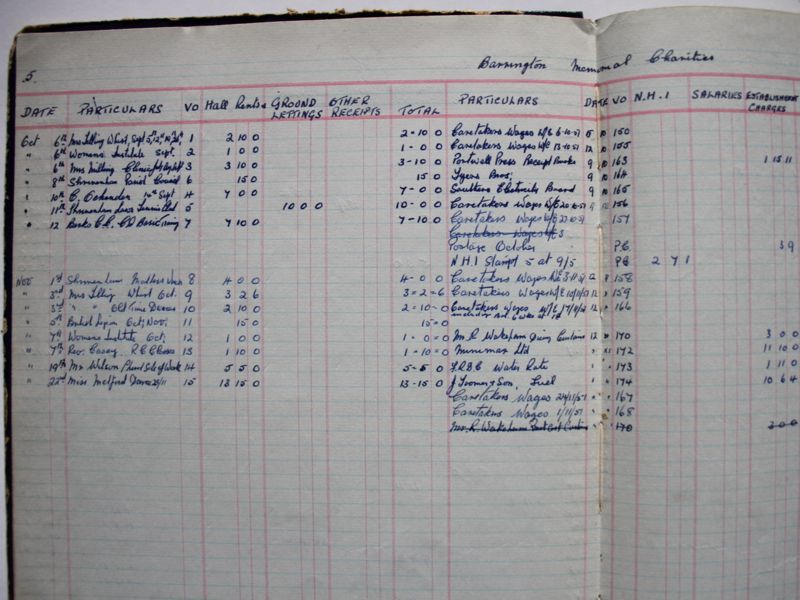 5.
Barrington Memorial Charities
DATE PARTICULARS VO Hall Rents GROUND LETTINGS OTHER RECEIPTS TOTAL PARTICULARS DATE VO N.H.I SALARIES ESTABLISHMENT CHARGES
Oct 6th Mrs Lilling Whist, Sept 1 2 10 0 2-10 0 Caretakers Wages W/E 6-10-51 150
" 6th Womens Institute Sept. 2 1 0 0 1-0 0 Caretakers Wages W/E 13-10-51 12 155
" 8th Mrs Milling 3 3 10 0 3-10 0 Portwell Press Receipt Books 9 163 1 15 11
" 8th Shrivenham Parish Council 6 15 0 15 0 Tyers Bros; 9 164
" 10th C. 10th Sept. 4 7 00 7-0 0 Southern Electricity Board 9 165
" 11th Shrivenham Lawn Tennis 5 10 0 0 10-0 0 Caretakers Wages W/E 20-10-51 156
" 12 7 7 10 0 7-10 0 Caretakers Wages W/E 27-10-51 157
Caretakers Wages
Postage October P.C 3 9
N.H.I Stamps 5 at 9/5 P.C 2 7 1
Nov 1st Shrivenham Mothers Union 8 4 0 0 4-0 0 Caretakers Wages W/E 3-11-51 12 158
" 3rd Mrs Lilling Whist Oct. 9 3 2 6 3=2=6 Caretakers Wages W/E 10/11/51 12 159
" 3rd " " Old Time Dances 10 2 10 0 2-10-0 Caretakers Wages W/E 17/11/51 12 166
" 5th British Legion Oct, Nov; 11 15 0 15=0
" 7th Womens Institute Oct; 12 1 0 0 1-0=0 Mr R Wakeham 12 170 3 0 0
" 7th Rev. Casey. 13 1 10 0 1-10=0 Minimax Ltd " 172 11 10 0
" 19th Mr Wilson Sale of Work 14 5 5 0 5-5 0 F.R.D.C Water Rate " 173 1 11 0
" 22nd Miss Melford Dance 23/11 15 13 15 0 13-15 0 & Son, Fuel " 174 10 6 4
Caretakers Wages 24/11/51 " 167
Caretakers Wages 1/11/51 " 168
Mr. R. Wakeham " 170 3 0 0